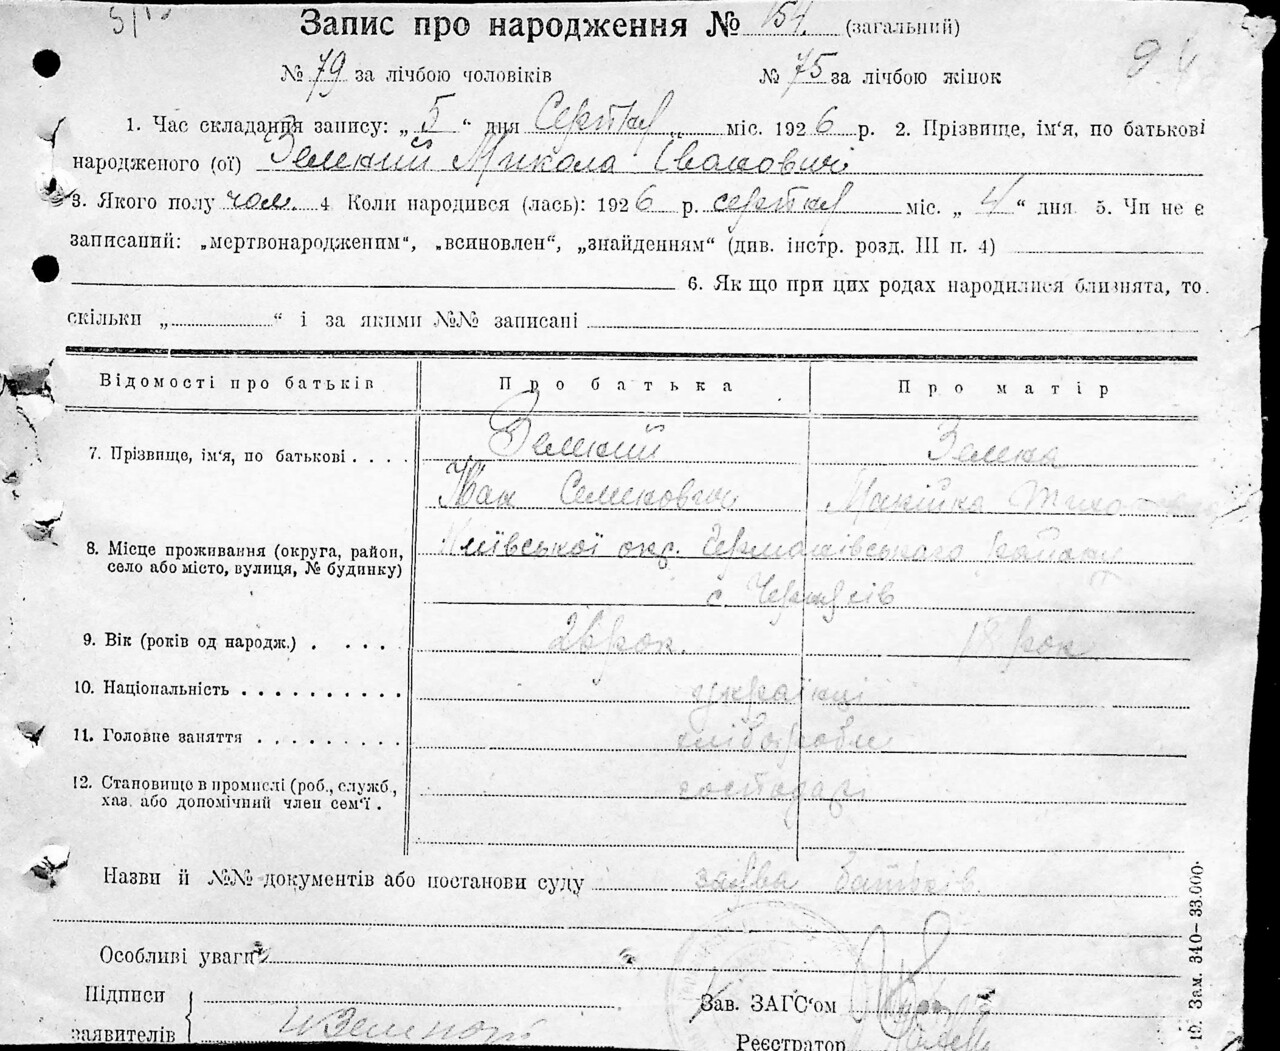 Запис про народження № 154. (загальний)
№ 79 за лічбою чоловіків № 75 за лічбою жінок
1. Час складання запису: „ 5 “ дня Серпня міс. 1926 р. 2. Прізвище, ім'я, по батькові
народженого (ої) Зелений Микола Іванович
3. Якого полу чол. 4. Коли народився (лась): 1926 р. серпня міс. „ 4 “ дня 5. Чи не є
записаний: „мертвонародженим“, „всиновлен“, „знайденням“ (див. інстр. розд. III п. 4)
6. Як що при цих родах народилися близнята, то
скільки „ “ і за якими №№ записані
Відомості про батьків Про батька Про матір
7. Прізвище, ім'я, по батькові . . . .
Іван Семенович
8. Місце проживання (округа, район,
село або місто, вулиця, № будинку)
Київської окр. Германівського району
с.
9. Вік (років од народж.) . . . . . рок. 18 рок.
10. Національність . . . . . . . . . . українці
11. Головне заняття . . . . . . . . . хлібороби
12. Становище в промислі (роб., служб.,
хаз. або допомічний член сем'ї . господарі
Назви й №№ документів або постанови суду заява батьків.
Особливі уваги
Підписи
заявителів
Зав. ЗАГС'ом
Реєстратор
Зам. 340– 33.000.